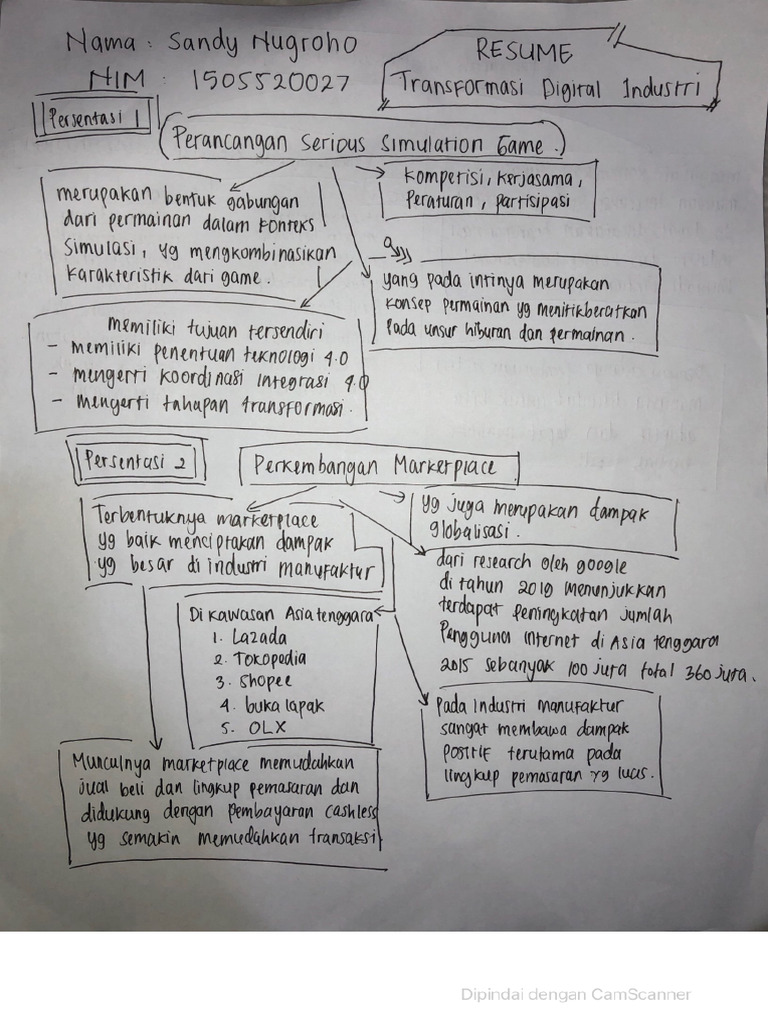 Nama : Sandy Nugroho
NIM : 1505520027
RESUME
Transformasi Digital Industri
Persentasi 1
Perancangan Serious Simulation Game.
merupakan bentuk gabungan
dari permainan dalam konteks
simulasi, yg mengkombinasikan
karakteristik dari game.
Kompetisi, kerjasama,
Peraturan, partisipasi
yang pada intinya merupakan
konsep permainan yg menitikberatkan
pada unsur hiburan dan permainan.
memiliki tujuan tersendiri
- memiliki penentuan teknologi 4.0
- mengerti koordinasi integrasi 4.0
- mengerti tahapan transformasi.
Persentasi 2
Perkembangan Marketplace
Terbentuknya marketplace
yg baik menciptakan dampak
yg besar di industri manufaktur
yg juga merupakan dampak
globalisasi.
dari research oleh google
di tahun 2019 menunjukkan
terdapat peningkatan jumlah
Pengguna internet di Asia tenggara
2015 sebanyak 100 juta total 360 juta.
Di kawasan Asia tenggara
1. Lazada
2. Tokopedia
3. Shopee
4. buka lapak
5. OLX
Pada Industri manufaktur
sangat membawa dampak
POSITIF terutama pada
lingkup pemasaran yg luas.
Munculnya marketplace memudahkan
jual beli dan lingkup pemasaran dan
didukung dengan pembayaran cashless
yg semakin memudahkan transaksi
Dipindai dengan CamScanner